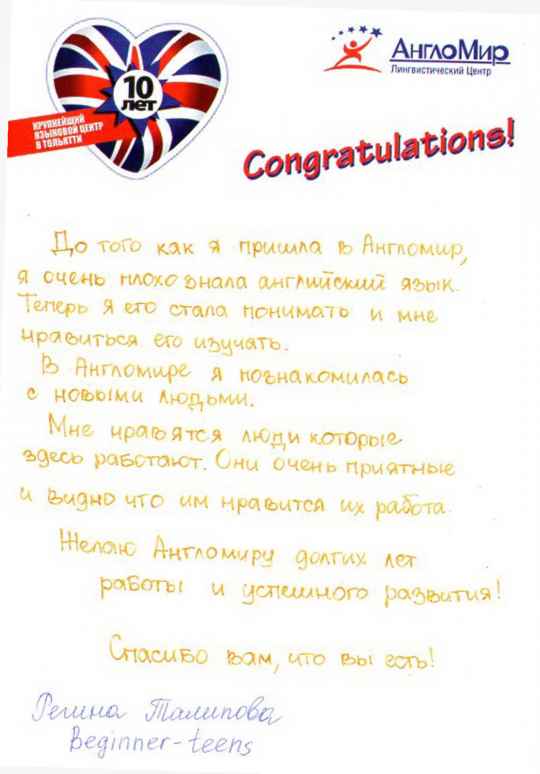 10
лет
КРУПНЕЙШИЙ
ЯЗЫКОВОЙ ЦЕНТР
В ТОЛЬЯТТИ
АнглоМир
Лингвистический Центр
Congratulations!
До того как я пришла в Англомир,
я очень плохо знала английский язык.
Теперь я его стала понимать и мне
нравиться его изучать.
В Англомире я познакомилась
с новыми людьми.
Мне нравятся люди которые
здесь работают. Они очень приятные
и видно что им нравится их работа.
Желаю Англомиру долгих лет
работы и успешного развития!
Спасибо вам, что вы есть!
Регина Талипова
Beginner-teens